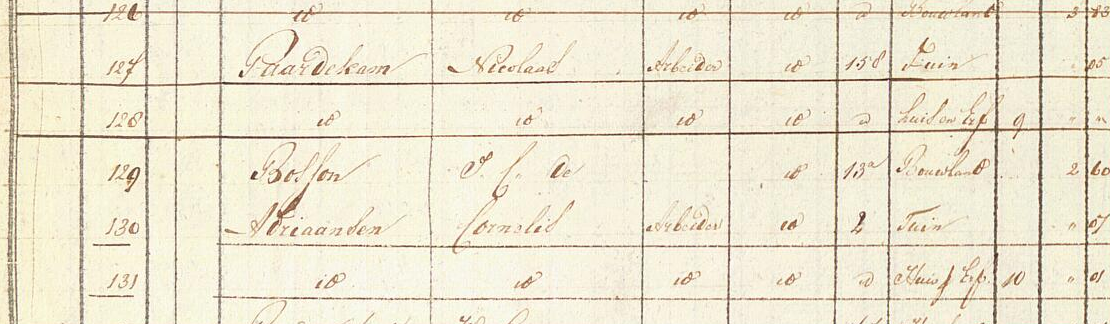 126 id id id id d Bouwland 3 83
127 Paardekam Nicolaas Arbeider id 158 Tuin 05
128 id id id id d huis en Erf 9 " "
129 Bosson J. C. de id 13a Bouwland 2 60
130 Adriaansen Cornelis Arbeider id 2 Tuin " 07
131 id id id id d Huis & Erf 10 " 01